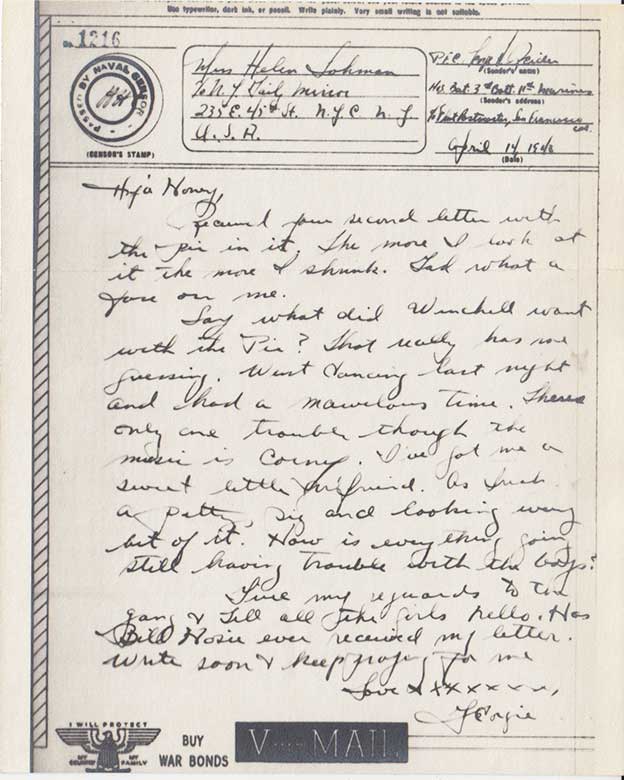 Use typewriter, dark ink, or pencil. Write plainly. Very small writing is not suitable.
No. 1216
PASSED BY NAVAL CENSOR
(CENSOR'S STAMP)
Miss Helen Lohman
% N.Y. Daily Mirror
235 E. 45th St. N.Y.C. N.Y
U.S.A.
Pfc
(Sender's name)
Hq. Bat. 3rd Batt. 11th Marines
(Sender's address)
% Fleet Postmaster, San Francisco
Cal.
April 14
(Date)
Hi'ya Honey,
Received your second letter with
the Pic in it. The more I look at
it the more I shrunk. Gad what a
on me.
Say what did Winchell want
with the Pic? That really has me
guessing. Went dancing last night
and had a marvelous time. Theres
only one trouble though the
music is Corney. I've got me a
sweet little girlfriend. As fresh
a and looking every
bit of it. How is everything going
still having trouble with the boys?
Give my reguards to the
gang & Tell all the girls hello. Has
Bill Hosie ever received my letter.
Write soon & keep praying for me
Love xxxxxxxx,
Georgie
I WILL PROTECT
MY COUNTRY MY FAMILY
BUY
WAR BONDS
V···—MAIL